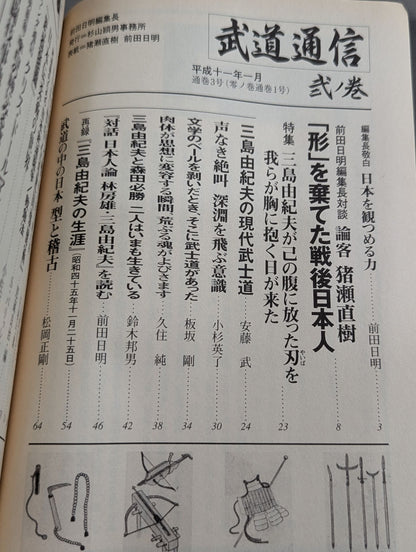 武道通信
弐ノ巻
平成十一年一月
通巻3号(零ノ巻通巻1号)
前田日明編集長
発行=杉山穎男事務所
表紙=猪瀬直樹 前田日明
編集長敬白 日本を観つめる力……前田日明……3
前田日明編集長対談 論客 猪瀬直樹
「形」を棄てた戦後日本人……8
特集 三島由紀夫が己の腹に放った刃を
やいば
我らが胸に抱く日が来た……23
三島由紀夫の現代武士道……安藤 武……24
声なき絶叫 深淵を飛ぶ意識……小杉英了……30
文学のベールを剥いだとき、そこに武士道があった……板坂 剛……34
肉体が思想に変容する瞬間 荒ぶる魂がよびさます……久住 純……38
三島由紀夫と森田必勝 二人はいまも生きている……鈴木邦男……42
『対話 日本人論 林房雄・三島由紀夫』を読む……前田日明……46
再録 「三島由紀夫の生涯」(昭和四十五年十一月二十五日)……54
武道の中の日本 型と稽古……松岡正剛……64